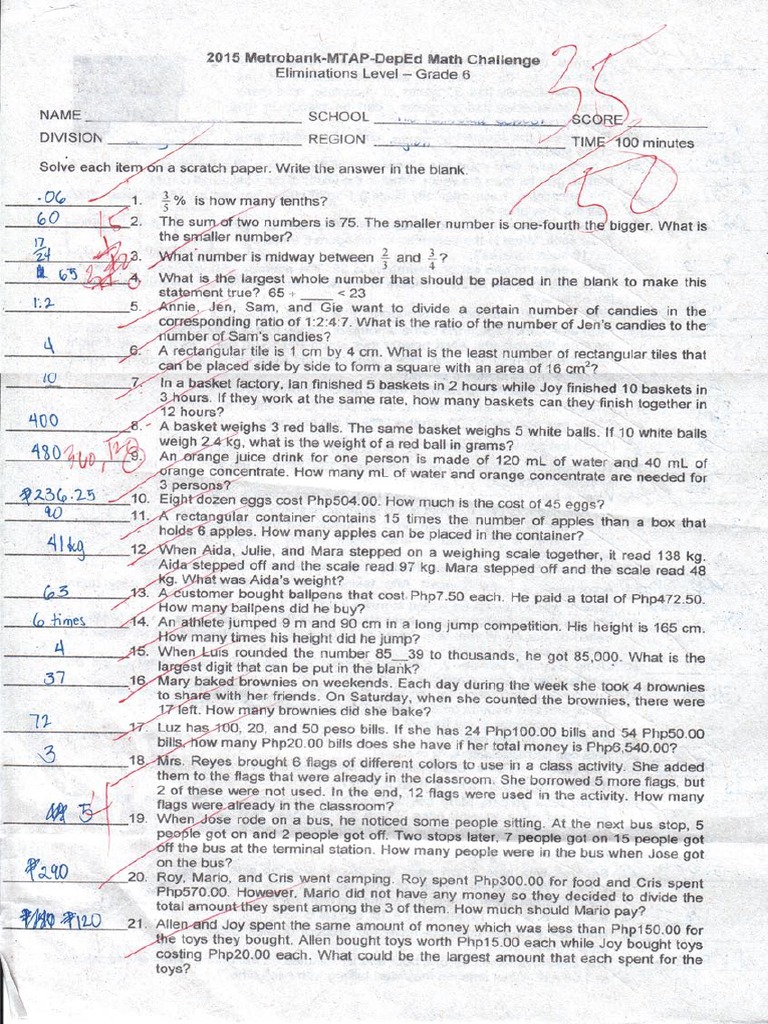 2015 Metrobank-MTAP-DepEd Math Challenge
Eliminations Level – Grade 6
35
50
NAME SCHOOL SCORE
DIVISION REGION TIME 100 minutes
Solve each item on a scratch paper. Write the answer in the blank.
.06 1. 3/5 % is how many tenths?
60 15 2. The sum of two numbers is 75. The smaller number is one-fourth the bigger. What is
the smaller number?
17/24 3. What number is midway between 2/3 and 3/4?
65 4. What is the largest whole number that should be placed in the blank to make this
statement true? 65 ÷ ____ < 23
1:2 5. Annie, Jen, Sam, and Gie want to divide a certain number of candies in the
corresponding ratio of 1:2:4:7. What is the ratio of the number of Jen's candies to the
number of Sam's candies?
4 6. A rectangular tile is 1 cm by 4 cm. What is the least number of rectangular tiles that
can be placed side by side to form a square with an area of 16 cm²?
10 7. In a basket factory, Ian finished 5 baskets in 2 hours while Joy finished 10 baskets in
3 hours. If they work at the same rate, how many baskets can they finish together in
12 hours?
400 8. A basket weighs 3 red balls. The same basket weighs 5 white balls. If 10 white balls
weigh 2.4 kg, what is the weight of a red ball in grams?
480 360, 120 9. An orange juice drink for one person is made of 120 mL of water and 40 mL of
orange concentrate. How many mL of water and orange concentrate are needed for
3 persons?
₱236.25 10. Eight dozen eggs cost Php504.00. How much is the cost of 45 eggs?
90 11. A rectangular container contains 15 times the number of apples than a box that
holds 6 apples. How many apples can be placed in the container?
41kg 12. When Aida, Julie, and Mara stepped on a weighing scale together, it read 138 kg.
Aida stepped off and the scale read 97 kg. Mara stepped off and the scale read 48
kg. What was Aida's weight?
63 13. A customer bought ballpens that cost Php7.50 each. He paid a total of Php472.50.
How many ballpens did he buy?
6 times 14. An athlete jumped 9 m and 90 cm in a long jump competition. His height is 165 cm.
How many times his height did he jump?
4 15. When Luis rounded the number 85__39 to thousands, he got 85,000. What is the
largest digit that can be put in the blank?
37 16. Mary baked brownies on weekends. Each day during the week she took 4 brownies
to share with her friends. On Saturday, when she counted the brownies, there were
17 left. How many brownies did she bake?
72 17. Luz has 100, 20, and 50 peso bills. If she has 24 Php100.00 bills and 54 Php50.00
bills, how many Php20.00 bills does she have if her total money is Php6,540.00?
3 18. Mrs. Reyes brought 6 flags of different colors to use in a class activity. She added
them to the flags that were already in the classroom. She borrowed 5 more flags, but
2 of these were not used. In the end, 12 flags were used in the activity. How many
flags were already in the classroom?
5 19. When Jose rode on a bus, he noticed some people sitting. At the next bus stop, 5
people got on and 2 people got off. Two stops later, 7 people got on 15 people got
off the bus at the terminal station. How many people were in the bus when Jose got
on the bus?
₱290 20. Roy, Mario, and Cris went camping. Roy spent Php300.00 for food and Cris spent
Php570.00. However, Mario did not have any money so they decided to divide the
total amount they spent among the 3 of them. How much should Mario pay?
₱120 21. Allen and Joy spent the same amount of money which was less than Php150.00 for
the toys they bought. Allen bought toys worth Php15.00 each while Joy bought toys
costing Php20.00 each. What could be the largest amount that each spent for the
toys?